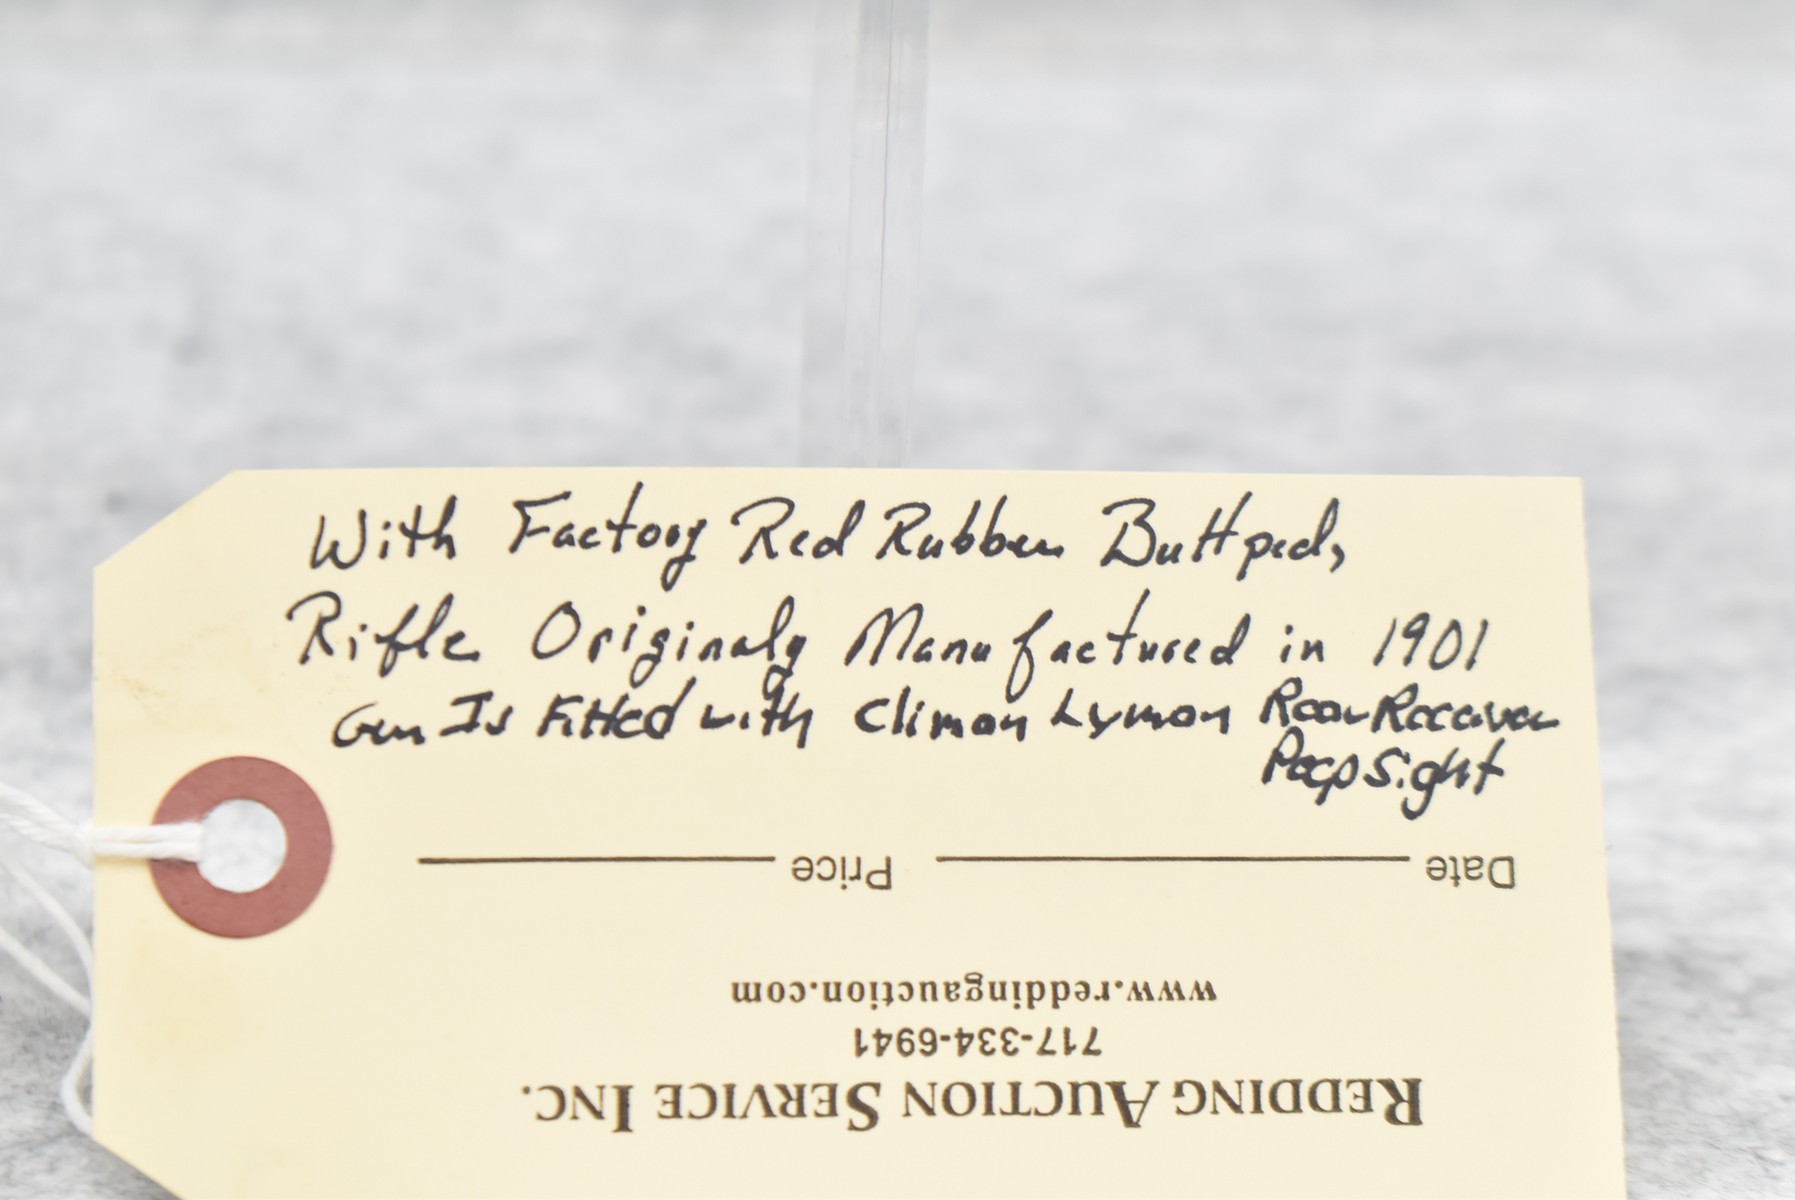 With Factory Red Rubber Buttpad,
Rifle Originaly Manufactured in 1901
Gun Is Fitted with Climan Lyman Rear Receiver
Peep Sight
Date Price
www.reddingauction.com
717-334-6941
REDDING AUCTION SERVICE INC.